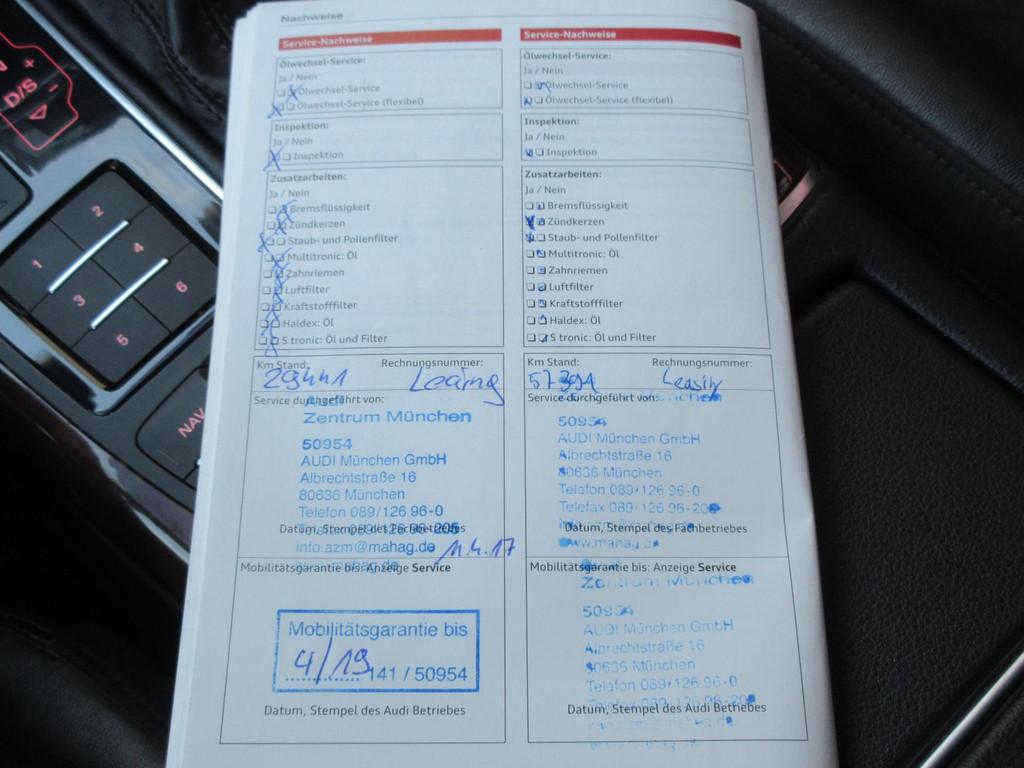 Nachweise
Service-Nachweise
Ölwechsel-Service:
Ja / Nein
Ölwechsel-Service
Ölwechsel-Service (flexibel)
Inspektion:
Ja / Nein
Inspektion
Zusatzarbeiten:
Ja / Nein
Bremsflüssigkeit
Zündkerzen
Staub- und Pollenfilter
Multitronic: Öl
Zahnriemen
Luftfilter
Kraftstofffilter
Haldex: Öl
S tronic: Öl und Filter
Km Stand: Rechnungsnummer:
29441 Leasing
Service durchgeführt von:
Zentrum München
50954
AUDI München GmbH
Albrechtstraße 16
80636 München
Telefon 089/126 96-0
Datum, Stempel des Fachbetriebes
info.azm@mahag.de 11.4.17
Mobilitätsgarantie bis: Anzeige Service
Mobilitätsgarantie bis
4/19 141 / 50954
Datum, Stempel des Audi Betriebes
Service-Nachweise
Ölwechsel-Service:
Ja / Nein
Ölwechsel-Service
Ölwechsel-Service (flexibel)
Inspektion:
Ja / Nein
Inspektion
Zusatzarbeiten:
Ja / Nein
Bremsflüssigkeit
Zündkerzen
Staub- und Pollenfilter
Multitronic: Öl
Zahnriemen
Luftfilter
Kraftstofffilter
Haldex: Öl
S tronic: Öl und Filter
Km Stand: Rechnungsnummer:
Leasing
Service durchgeführt von: München
50954
AUDI München GmbH
Albrechtstraße 16
80636 München
Telefon 089/126 96-0
Telefax 089/126 96-205
Datum, Stempel des Fachbetriebes
www.mahag.de
Mobilitätsgarantie bis: Anzeige Service
Zentrum München
50954
AUDI München GmbH
Albrechtstraße 16
80636 München
Telefon 089/126 96-0
Datum, Stempel des Audi Betriebes
D/S
+
-
1
2
3
4
5
6
NAV